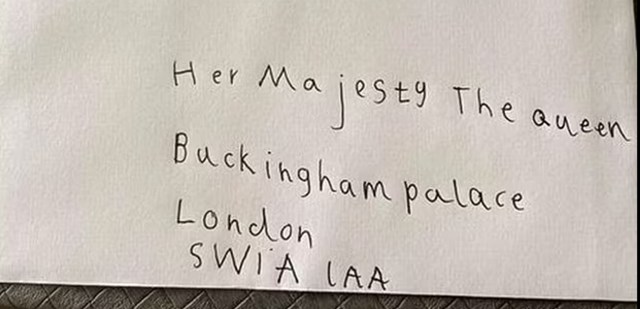 Her Majesty The queen
Buckingham palace
London
SW1A 1AA